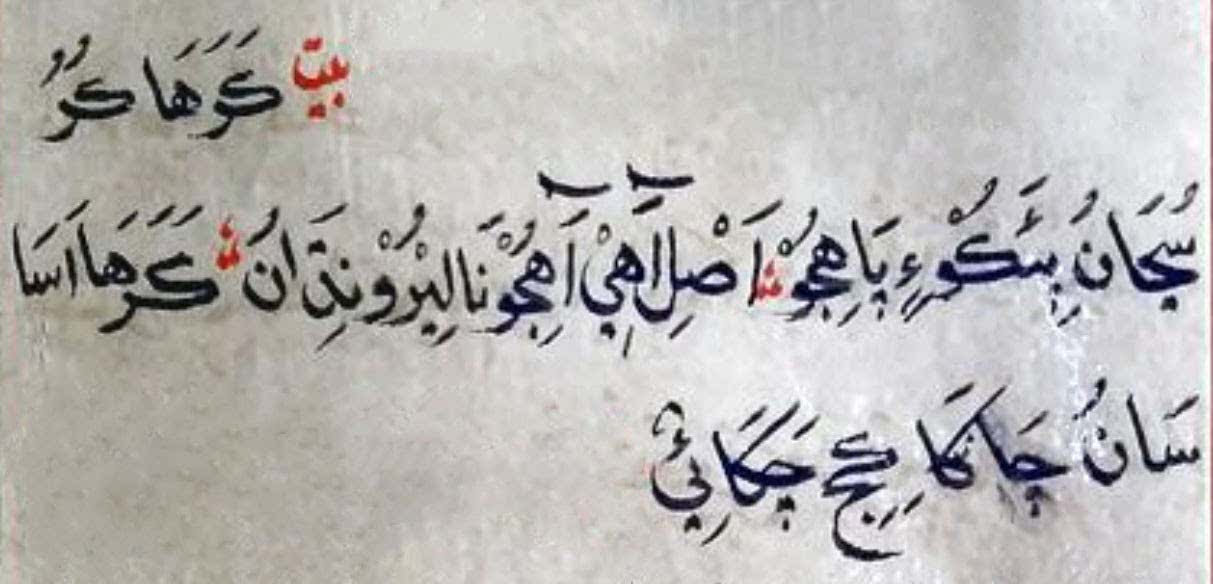 بيت كَرَهَا كُرُ
سُجَانُ بِسَكُوْءِ پَاهِجُوْ اَصْلِ آهِيْ اَهِجُوْ نَا لِيْرُوْ نِدَانُ كَرَهَا اَسَا
سَانُ چَانكَا كِجِ چَكَائِيْ